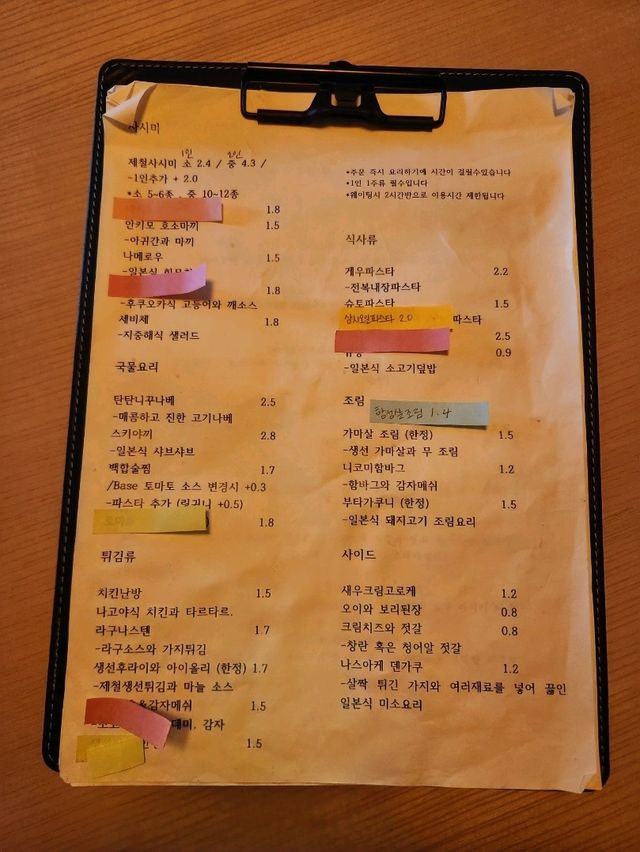 사시미
1인 2인
제철사시미 소 2.4 / 중 4.3 /
-1인추가 + 2.0
*소 5~6종 , 중 10~12종
1.8
안키모 호소마끼 1.5
-아귀간과 마끼
나메로우 1.5
-일본식
1.8
-후쿠오카식 고등어와 깨소스
세비체 1.8
-지중해식 샐러드
국물요리
탄탄니꾸나베 2.5
-매콤하고 진한 고기나베
스키야끼 2.8
-일본식 샤브샤브
백합술찜 1.7
/Base 토마토 소스 변경시 +0.3
-파스타 추가 (링귀니 +0.5)
1.8
튀김류
치킨난방 1.5
나고야식 치킨과 타르타르.
라구나스텐 1.7
-라구소스와 가지튀김
생선후라이와 아이올리 (한정) 1.7
-제철생선튀김과 마늘 소스
&감자메쉬 1.5
데미, 감자
1.5
*주문 즉시 요리하기에 시간이 걸릴수있습니다
*1인 1주류 필수입니다
*웨이팅시 2시간반으로 이용시간 제한됩니다
식사류
게우파스타 2.2
-전복내장파스타
슈토파스타 1.5
2.0 파스타
2.5
0.9
-일본식 소고기덮밥
조림
1.4
가마살 조림 (한정) 1.5
-생선 가마살과 무 조림
니코미함바그 1.2
-함바그와 감자메쉬
부타가쿠니 (한정) 1.5
-일본식 돼지고기 조림요리
사이드
새우크림고로케 1.2
오이와 보리된장 0.8
크림치즈와 젓갈 0.8
-창란 혹은 청어알 젓갈
나스아케 덴가쿠 1.2
-살짝 튀긴 가지와 여러재료를 넣어 끓인
일본식 미소요리